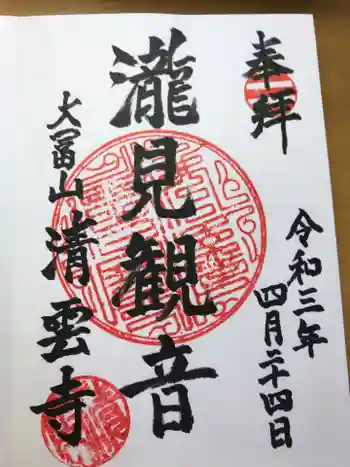 奉拝
令和三年
四月二十四日
瀧見観音
大冨山清雲寺